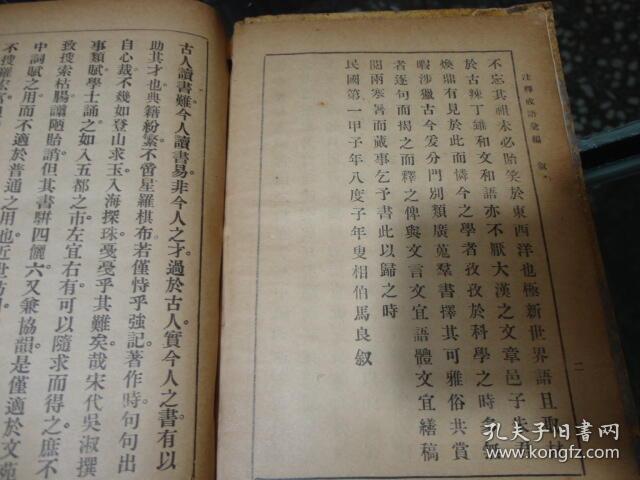 注釋成語彙編 敘
二
不忘其祖未必貽笑於東西洋也極新世界語且取材
於古辣丁雖和文和語亦不厭大漢之文章邑子朱君
煥鼎有見於此而憐今之學者孜孜於科學之時多無
暇涉獵古今爰分門別類廣蒐羣書擇其可雅俗共賞
者逐句而揭之而釋之俾與文言文宜語體文宜繕稿
閱兩寒暑而蕆事乞予書此以歸之時
民國第一甲子年八度子年叟相伯馬良敘
古人讀書難今人讀書易非今人之才過於古人實今人之書有以
助其才也典籍紛繁不啻星羅棋布若僅恃乎強記著作時句句出
自心裁不幾如登山求玉入海探珠戞戞乎其難矣哉宋代吳淑撰
事類賦學士誦之如入五都之市左宜右有可以隨求而得之庶不
致搜索枯腸讓陋貽誚但其書駢四儷六又兼協韻是僅適於文苑
中詞賦之用而不適於普通之用也近世坊
不搜羅宏富
孔夫子旧书网
kongfz.com